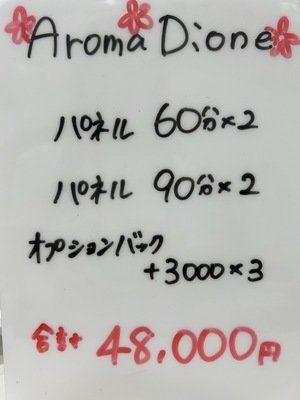 Aroma Dione
パネル 60分×2
パネル 90分×2
オプションバック
+3000×3
合計 48,000円